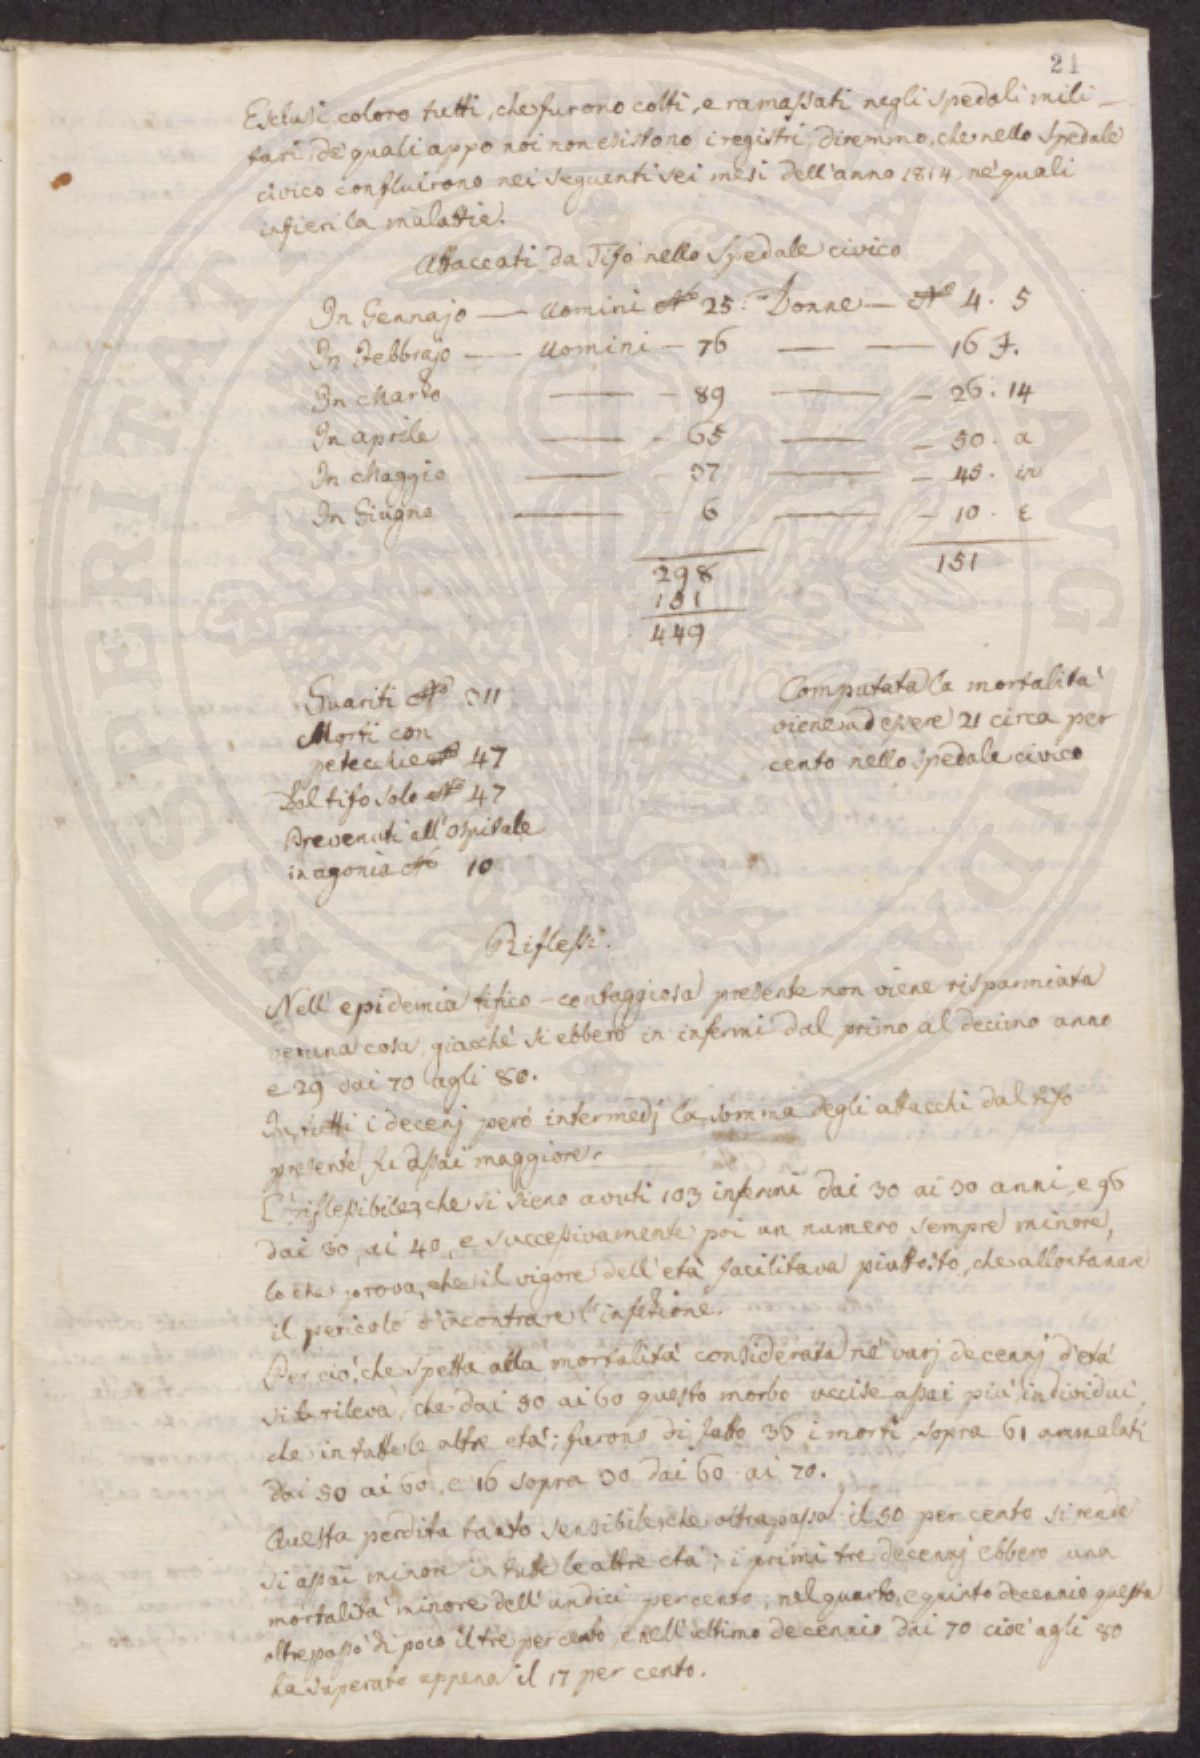 21
Esclusi coloro tutti, che furono colti, e ramassati negli spedali mili-
tari, de' quali appo noi non esistono i registri, diremmo, che nello Spedale
civico confluirono nei seguenti sei mesi dell'anno 1814 ne' quali
infierì la malattia.
Attaccati da Tifo nello Spedale civico
In Gennajo — Uomini No 25. Donne — No 4. 5
In Febbrajo — Uomini — 76 — — 16
In Marzo — 89 — 26. 14
In Aprile — 65 — 50. a
In Maggio — 37 — 45. in
In Giugno — 6 — 10.
298 151
151
449
Guariti No 311
Morti con
petecchie No 47
Dal tifo solo No 47
Prevenuti all'Ospitale
in agonia No 10
Computata la mortalità
viene ad essere 21 circa per
cento nello spedale civico
Riflessi.
Nell'epidemia tifico-contaggiosa presente non viene risparmiata
veruna cosa, giacchè si ebbero in infermi dal primo al decimo anno
e 29 dai 70 agli 80.
In tutti i decenj però intermedj la somma degli attacchi dal tifo
presente fu assai maggiore.
È riflessibile, che si sieno avuti 103 infermi dai 30 ai 30 anni, e 96
dai 30, ai 40, e successivamente poi un numero sempre minore,
lo che prova, che il vigore dell'età facilitava piuttosto, che allontanare
il pericolo d'incontrare l'infezione.
Per ciò, che spetta alla mortalità considerata ne' varj decennj d'età
si rileva, che dai 50 ai 60 questo morbo uccise assai più individui,
che in tutte le altre età; furono di fatto 36 i morti sopra 61 ammalati
dai 50 ai 60, e 16 sopra 30 dai 60 ai 70.
Questa perdita tanto sensibile, che oltrapassa il 50 per cento si rende
si assai minore in tutte le altre età; i primi tre decennj ebbero una
mortalità minore dell'undici per cento; nel quarto, e quinto decennio questa
oltrepassò di poco il tre per cento, e nell'ultimo decennio dai 70 cioè agli 80
ha superato appena il 17 per cento.